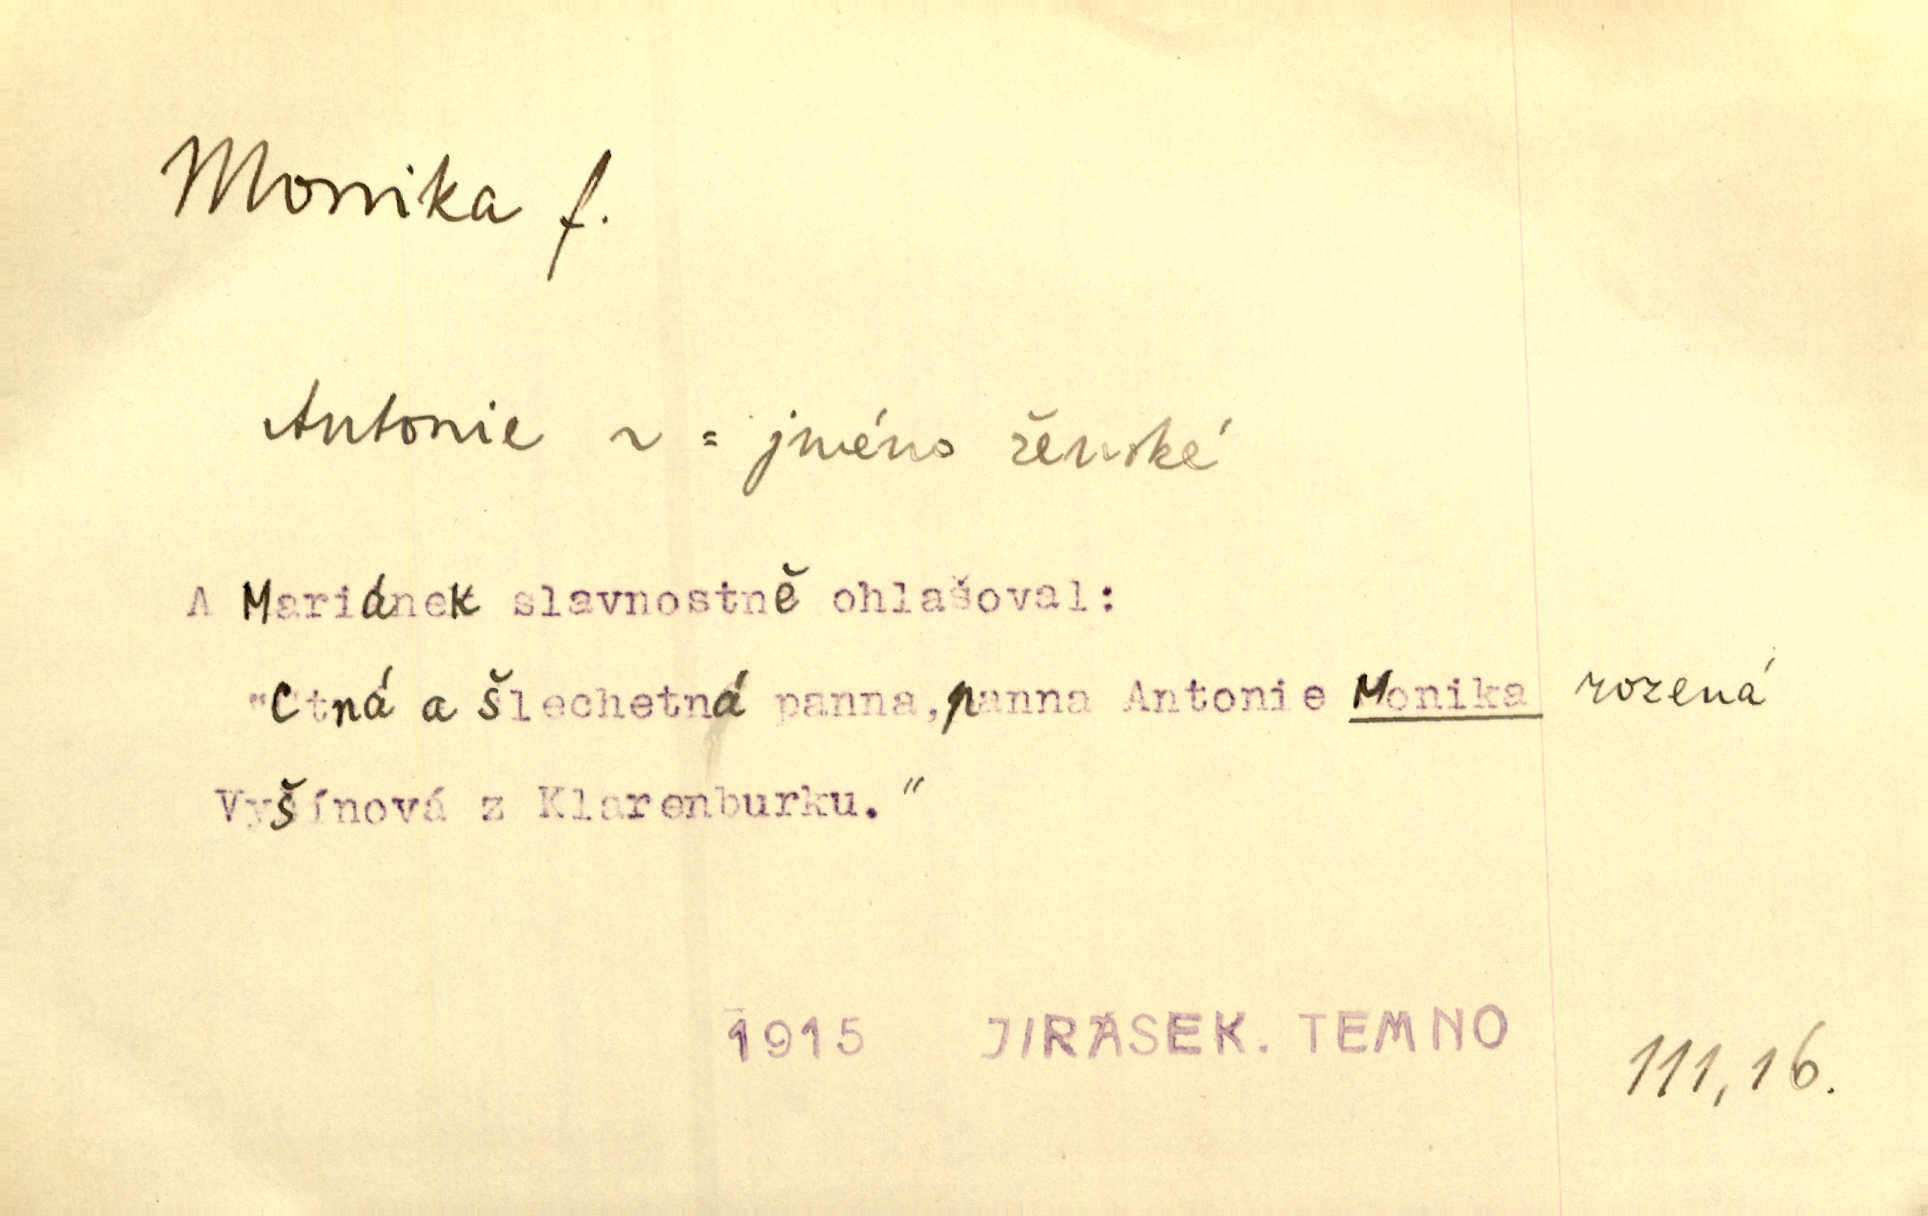 Monika f.
Antonie ~ = jméno ženské
A Mariánek slavnostně ohlašoval:
"Ctná a šlechetná panna, panna Antonie Monika rozená
Vyšínová z Klarenburku."
1915 JIRÁSEK. TEMNO
111, 16.